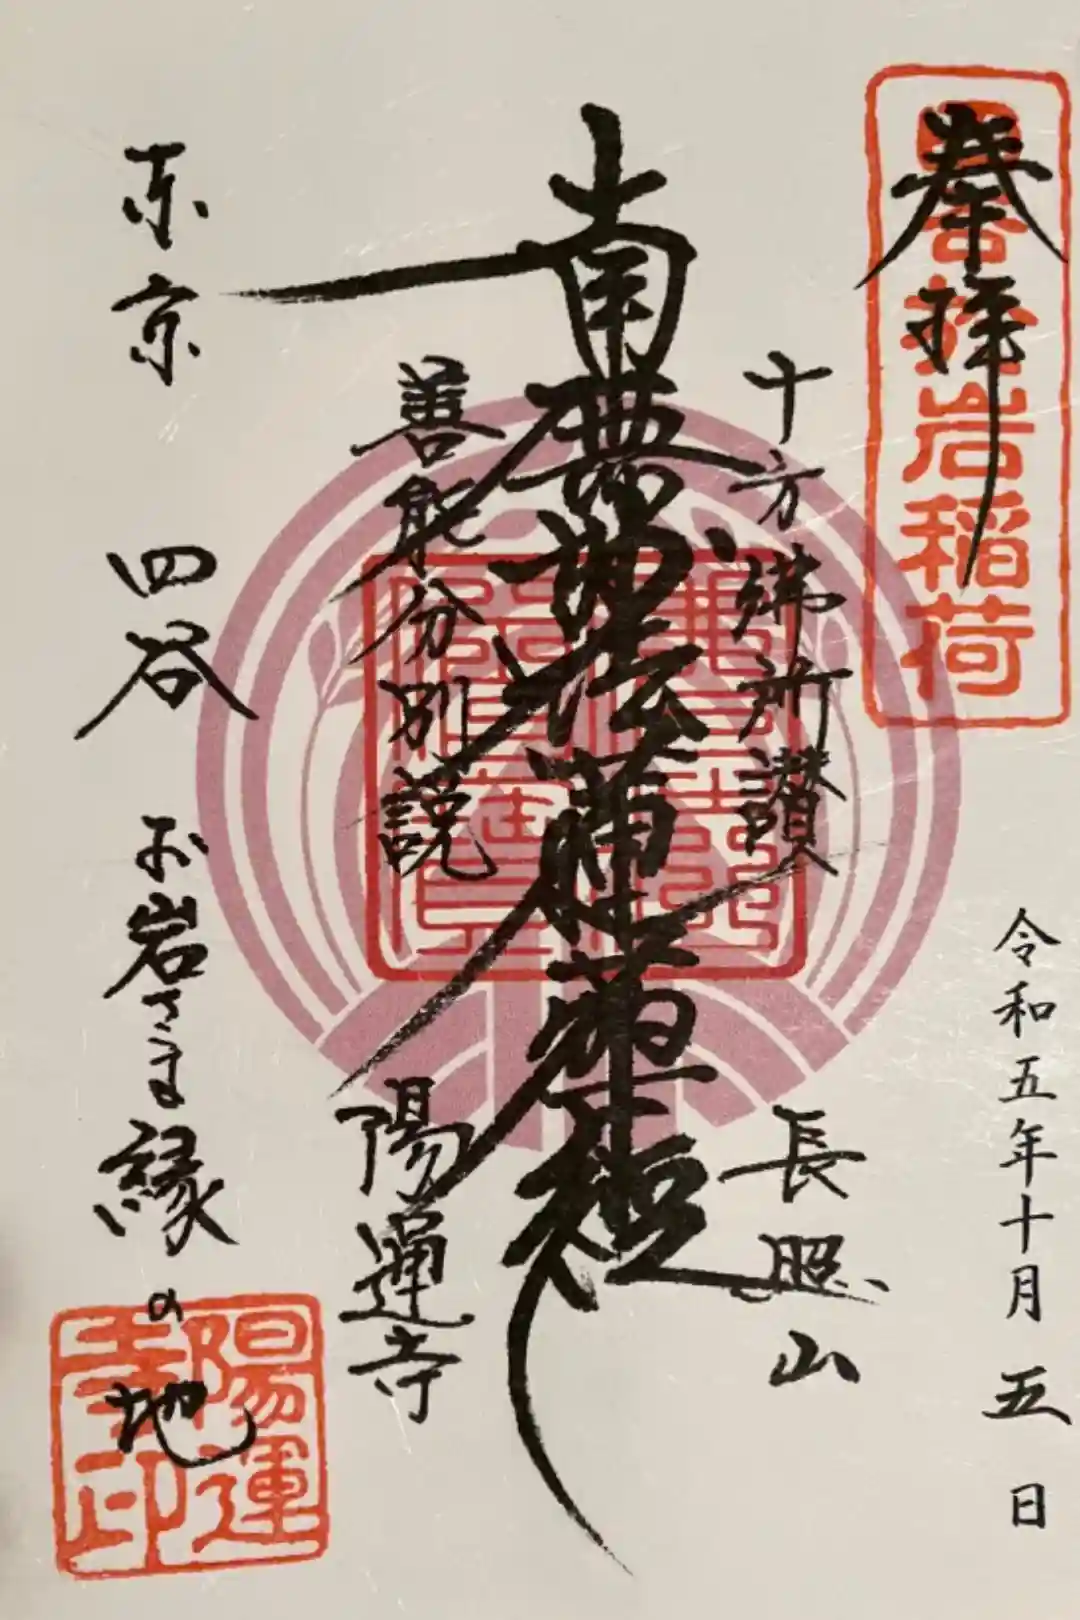 奉拝
四谷於岩稲荷
令和五年十月五日
十方佛所讃
長照山
南無妙法蓮華経
善能分別説
陽運寺
東京 四谷 お岩さま縁の地
陽運寺印